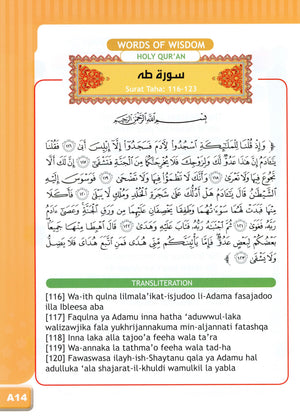 WORDS OF WISDOM
HOLY QUR'AN
سورة طه
Surat Taha: 116-123
بِسْمِ اللَّهِ الرَّحْمَٰنِ الرَّحِيمِ
﴿ وَإِذْ قُلْنَا لِلْمَلَٰٓئِكَةِ ٱسْجُدُوا۟ لِءَادَمَ فَسَجَدُوٓا۟ إِلَّآ إِبْلِيسَ أَبَىٰ ﴿١١٦﴾ فَقُلْنَا
يَٰٓـَٔادَمُ إِنَّ هَٰذَا عَدُوٌّ لَّكَ وَلِزَوْجِكَ فَلَا يُخْرِجَنَّكُمَا مِنَ ٱلْجَنَّةِ فَتَشْقَىٰٓ ﴿١١٧﴾ إِنَّ لَكَ أَلَّا
تَجُوعَ فِيهَا وَلَا تَعْرَىٰ ﴿١١٨﴾ وَأَنَّكَ لَا تَظْمَؤُا۟ فِيهَا وَلَا تَضْحَىٰ ﴿١١٩﴾ فَوَسْوَسَ إِلَيْهِ
ٱلشَّيْطَٰنُ قَالَ يَٰٓـَٔادَمُ هَلْ أَدُلُّكَ عَلَىٰ شَجَرَةِ ٱلْخُلْدِ وَمُلْكٍ لَّا يَبْلَىٰ ﴿١٢٠﴾ فَأَكَلَا
مِنْهَا فَبَدَتْ لَهُمَا سَوْءَٰتُهُمَا وَطَفِقَا يَخْصِفَانِ عَلَيْهِمَا مِن وَرَقِ ٱلْجَنَّةِ وَعَصَىٰٓ ءَادَمُ
رَبَّهُۥ فَغَوَىٰ ﴿١٢١﴾ ثُمَّ ٱجْتَبَٰهُ رَبُّهُۥ فَتَابَ عَلَيْهِ وَهَدَىٰ ﴿١٢٢﴾ قَالَ ٱهْبِطَا مِنْهَا جَمِيعًۢا
بَعْضُكُمْ لِبَعْضٍ عَدُوٌّ فَإِمَّا يَأْتِيَنَّكُم مِّنِّى هُدًى فَمَنِ ٱتَّبَعَ هُدَاىَ فَلَا يَضِلُّ
وَلَا يَشْقَىٰ ﴿١٢٣﴾
TRANSLITERATION
[116] Wa-ith qulna lilmala'ikat-isjudoo li-Adama fasajadoo
illa Ibleesa aba
[117] Faqulna ya Adamu inna hatha 'aduwwul-laka
walizawjika fala yukhrijannakuma min-aljannati fatashqa
[118] Inna laka alla tajoo'a feeha wala ta'ra
[119] Wa-annaka la tathma'o feeha wala tad-ha
[120] Fawaswasa ilayh-ish-Shaytanu qala ya Adamu hal
adulluka 'ala shajarat-il-khuldi wamulkil la yabla
A14